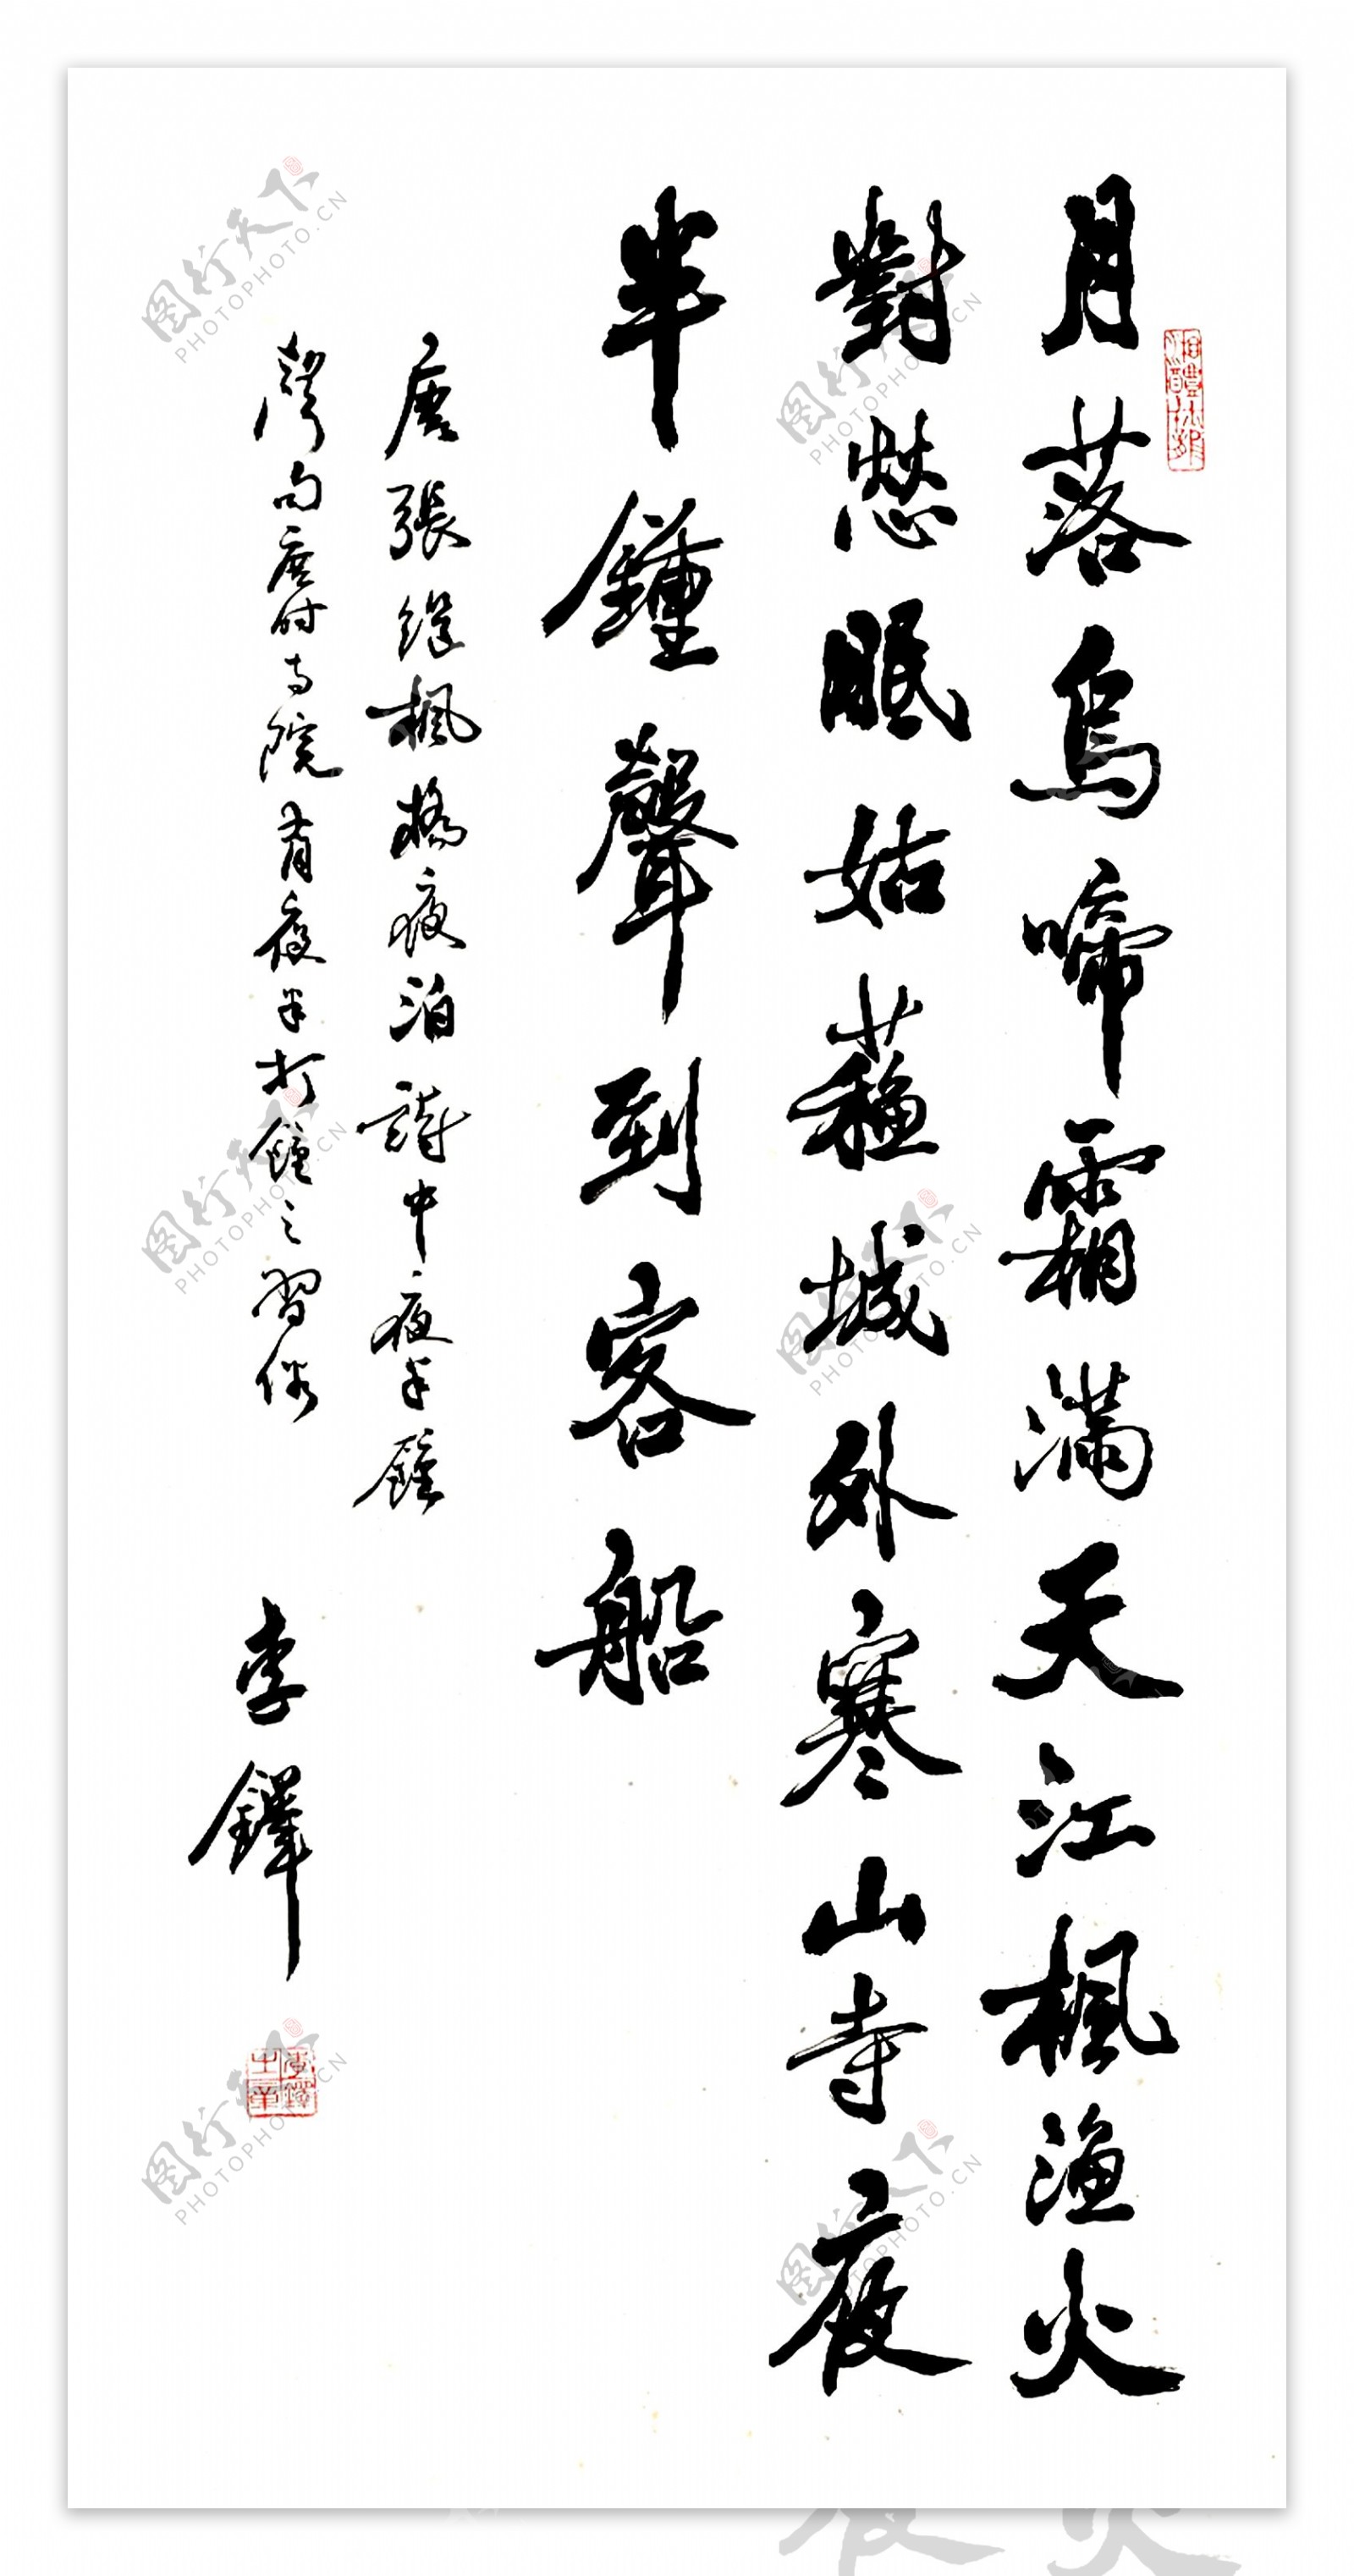 月落烏啼霜滿天江楓漁火
對愁眠姑蘓城外寒山寺夜
半鍾聲到客船
唐張繼楓橋夜泊詩中夜半鐘
聲句唐時寺院有夜半打鐘之習俗
李鐸
李鐸之章
图行天下
PHOTOPHOTO.CN